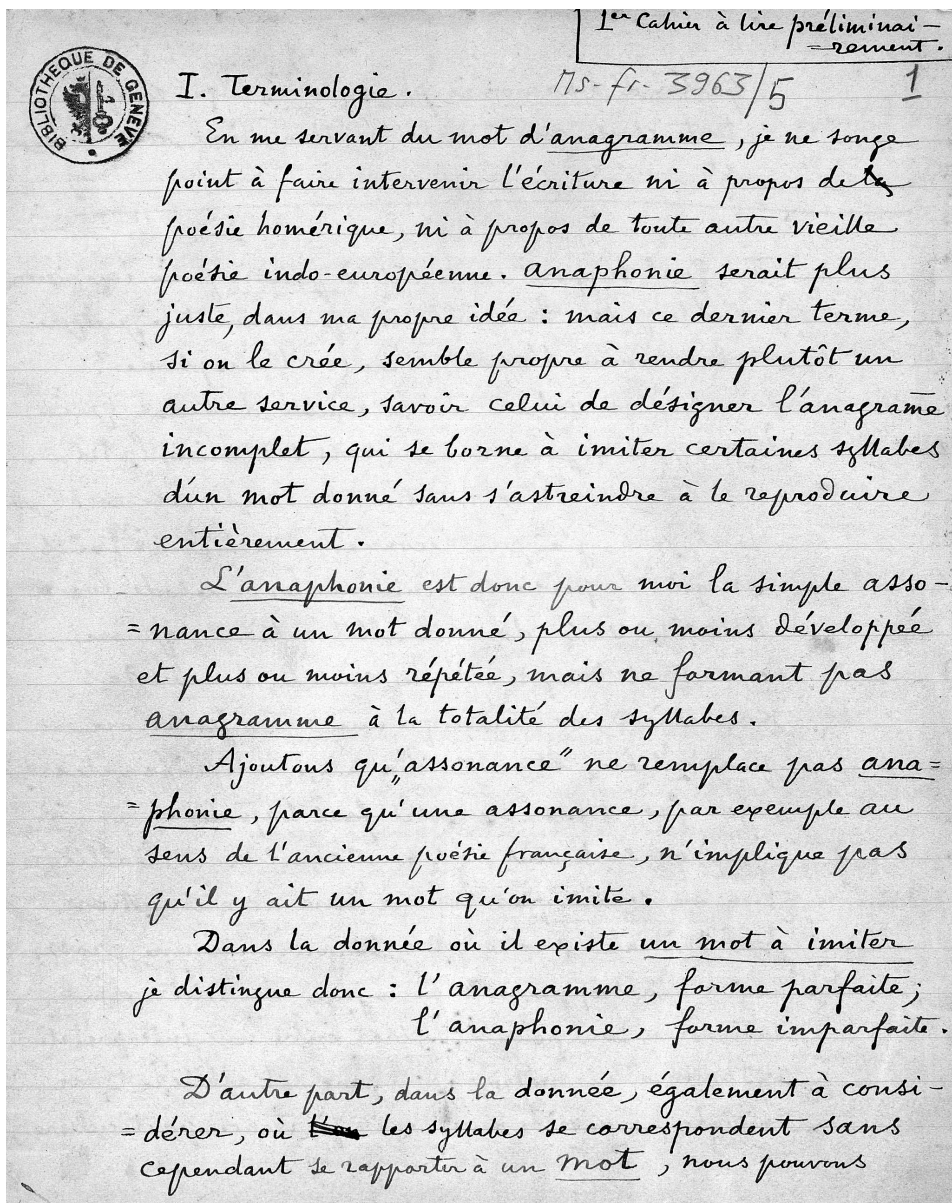 1er Cahier à lire préliminai-
=rement.
BIBLIOTHEQUE DE GENEVE
Ms. fr. 3963/5
1
I. Terminologie.
En me servant du mot d'anagramme, je ne songe
point à faire intervenir l'écriture ni à propos de la
poésie homérique, ni à propos de toute autre vieille
poésie indo-européenne. Anaphonie serait plus
juste, dans ma propre idée : mais ce dernier terme,
si on le crée, semble propre à rendre plutôt un
autre service, savoir celui de désigner l'anagram̄e
incomplet, qui se borne à imiter certaines syllabes
d'un mot donné sans s'astreindre à le reproduire
entièrement.
L'anaphonie est donc pour moi la simple asso-
=nance à un mot donné, plus ou moins développée
et plus ou moins répétée, mais ne formant pas
anagramme à la totalité des syllabes.
Ajoutons qu'„assonance" ne remplace pas ana=
=phonie, parce qu'une assonance, par exemple au
sens de l'ancienne poésie française, n'implique pas
qu'il y ait un mot qu'on imite.
Dans la donnée où il existe un mot à imiter
je distingue donc : l'anagramme, forme parfaite;
l'anaphonie, forme imparfaite.
D'autre part, dans la donnée, également à consi-
=dérer, où les syllabes se correspondent sans
cependant se rapporter à un mot, nous pouvons